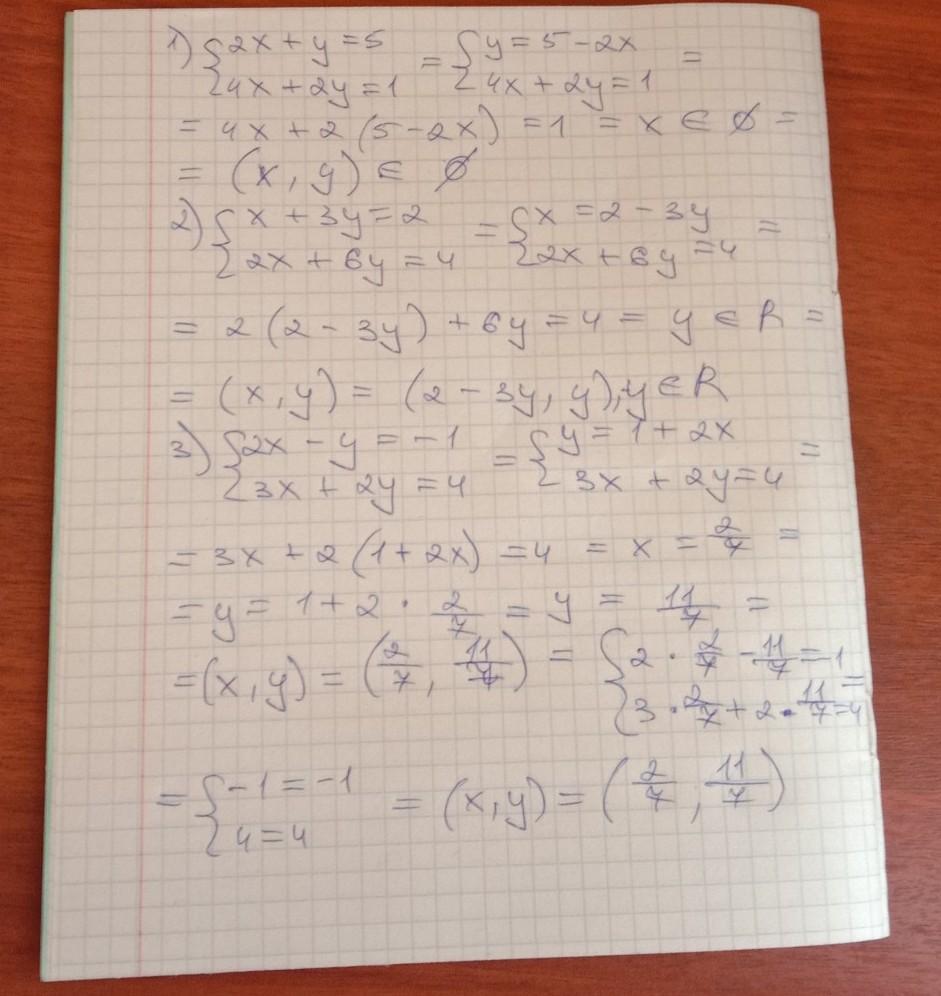 1) {2x + y = 5 = {y = 5 - 2x =
{4x + 2y = 1 {4x + 2y = 1
= 4x + 2 (5 - 2x) = 1 = x ∈ ∅ =
= (x, y) ∈ ∅
2) {x + 3y = 2 = {x = 2 - 3y =
{2x + 6y = 4 {2x + 6y = 4
= 2 (2 - 3y) + 6y = 4 = y ∈ R =
= (x, y) = (2 - 3y, y), y ∈ R
3) {2x - y = -1 = {y = 1 + 2x =
{3x + 2y = 4 {3x + 2y = 4
= 3x + 2 (1 + 2x) = 4 = x = 2/7 =
= y = 1 + 2 · 2/7 = y = 11/7 =
= (x, y) = (2/7, 11/7) = {2 · 2/7 - 11/7 = -1
{3 · 2/7 + 2 · 11/7 = 4 =
= {-1 = -1 = (x, y) = (2/7, 11/7)
{4 = 4